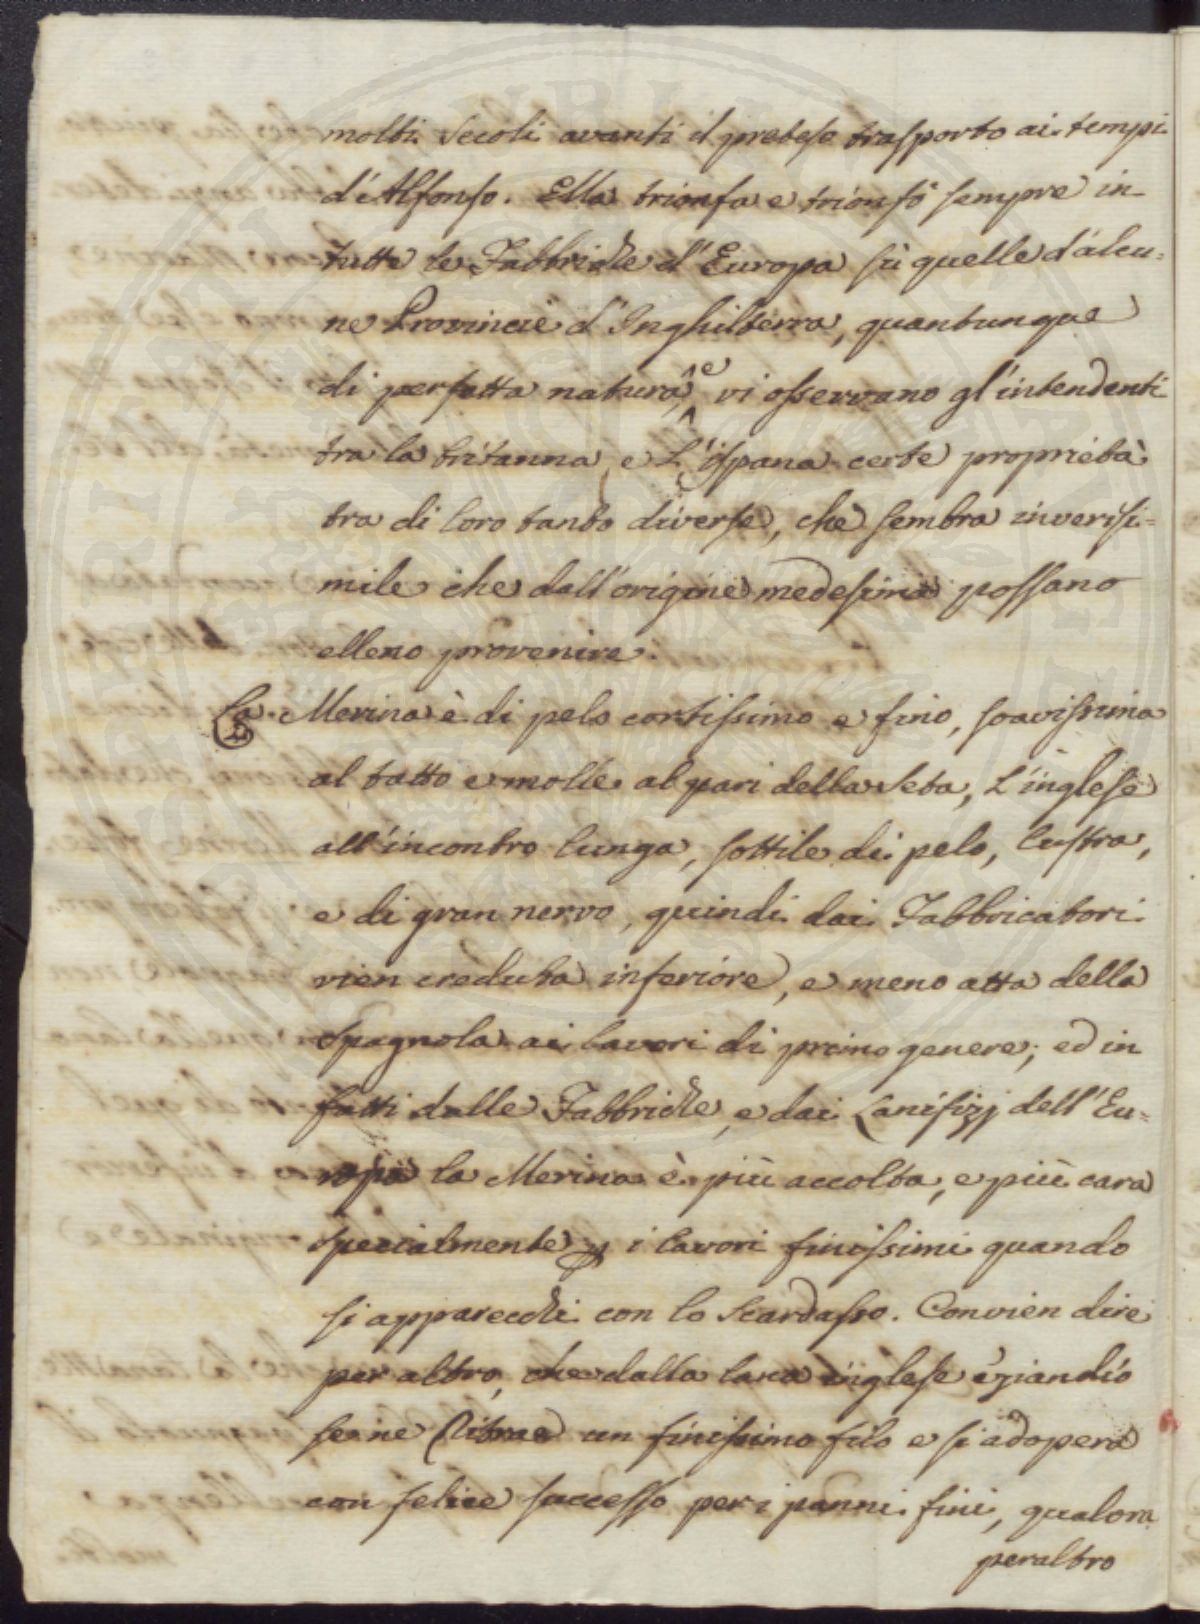 molti secoli avanti il pretese trasporto ai tempi
d'Alfonso. Ella trionfa e trionfò sempre in
tutte le Fabbriche d'Europa sù quelle d'alcu=
ne Provincie d'Inghilterra, quantunque
di perfetta natura, e vi osservano gl'intendenti
tra la britanna, e L'ispana certe proprietà
tra di loro tanto diverse, che sembra inverisi=
mile che dall'origine medesima possano
elleno provenire.
La Merina è di pelo cortissimo e fino, soavissima
al tatto e molle al pari della Seta, L'inglese
all'incontro lunga, sottile di pelo, lustra,
e di gran nervo, quindi dai Fabbricatori
vien creduta inferiore, e meno atta della
Spagnola ai lavori di primo genere; ed in
fatti dalle Fabbriche, e dai Lanifizj dell'Eu=
ropa la Merina è più accolta, e più cara
specialmente i lavori finissimi quando
si apparecchi con lo Scardasso. Convien dire
per altro, che dalla lana inglese eziandio
se ne ritrae un finissimo filo e si adopera
con felice successo per i panni fini, qualora
peraltro